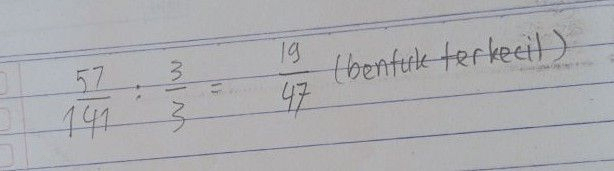 57/141 : 3/3 = 19/47 (bentuk terkecil)